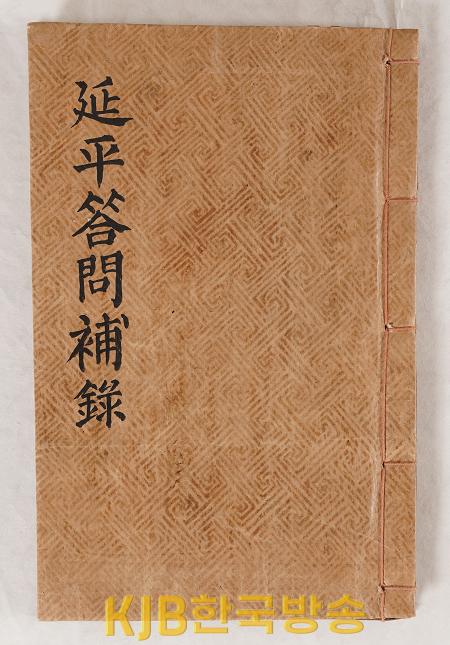 延平答問補錄
KJB한국방송